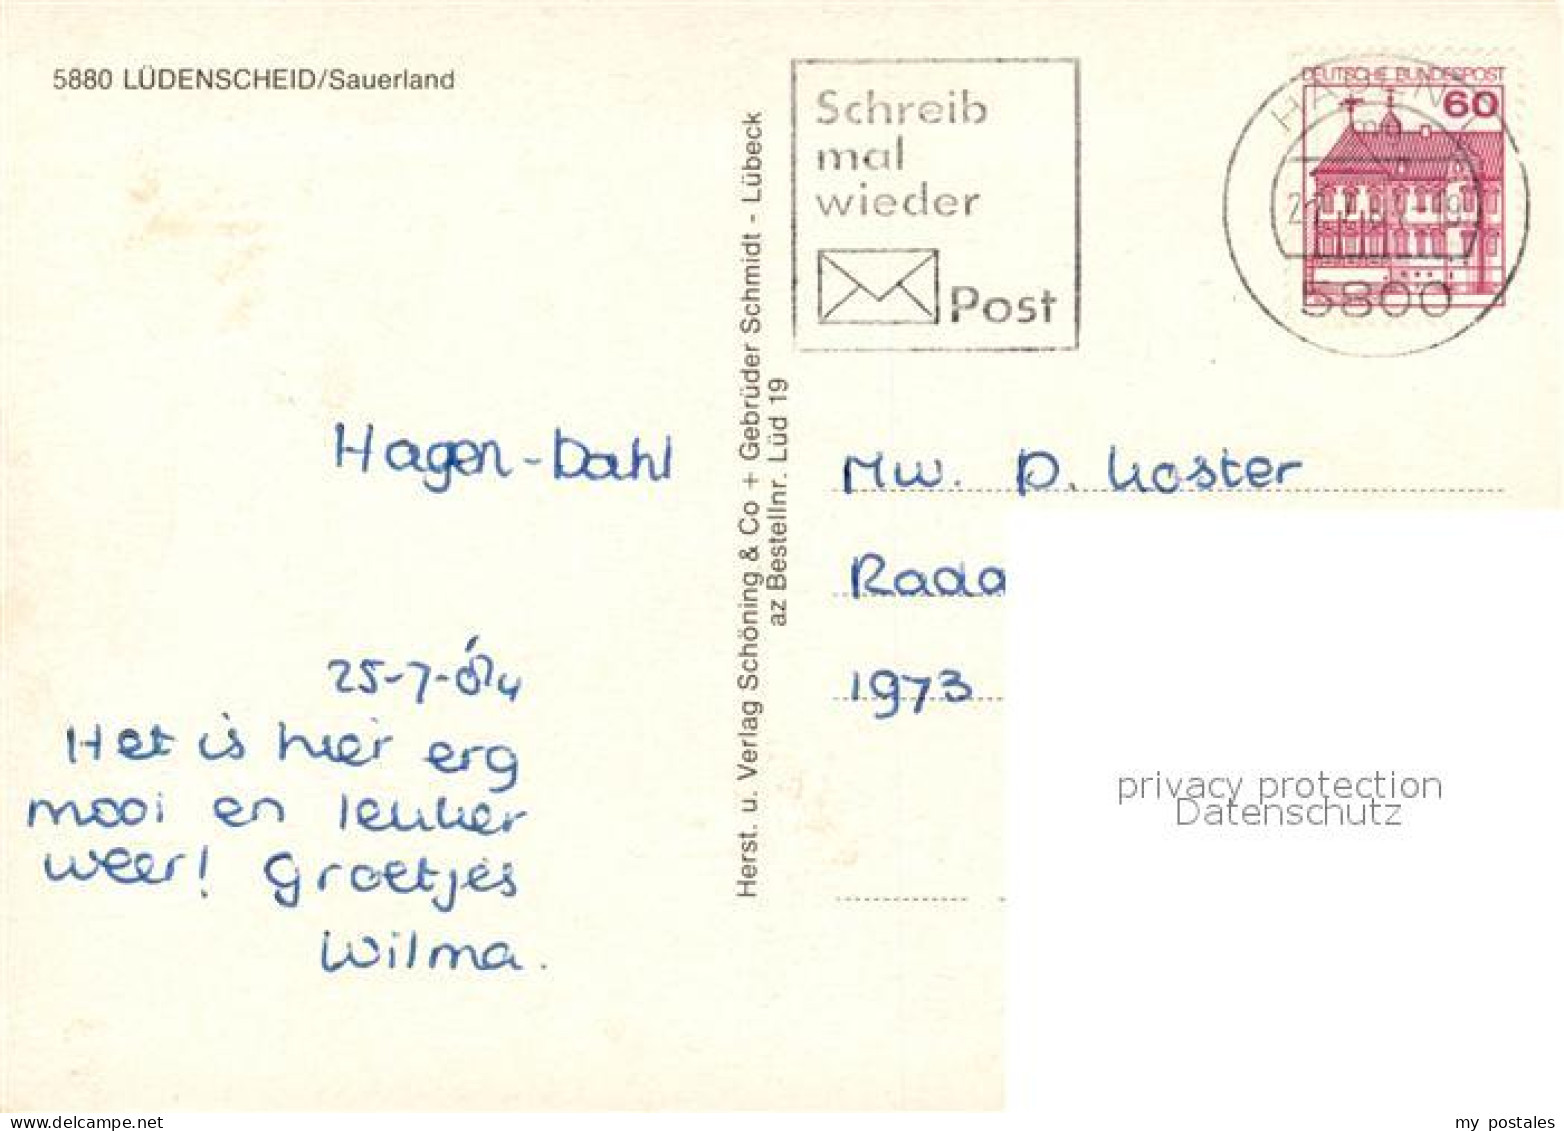 5880 LÜDENSCHEID/Sauerland
Hagen-Dahl
25-7-84
Het is hier erg
mooi en lekker
weer! Groetjes
Wilma.
Herst. u. Verlag Schöning & Co + Gebrüder Schmidt - Lübeck
az Bestellnr. Lüd 19
Schreib
mal
wieder
Post
DEUTSCHE BUNDESPOST
60
HAGEN
5800
Mw. D. Koster
Rada
1973
privacy protection
Datenschutz
www.delcampe.net
my_postales